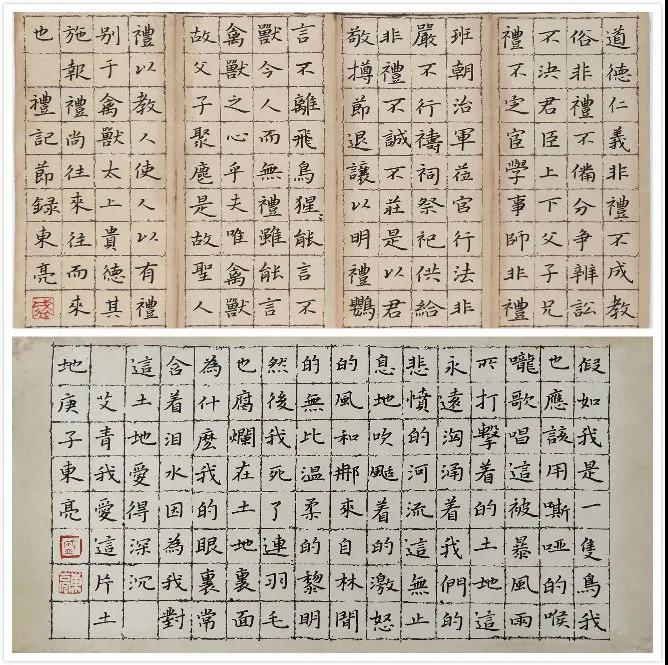 道德仁義非禮不成教
俗非禮不備分爭辨訟
不決君臣上下父子兄
禮不定宦學事師非禮
班朝治軍蒞官行法非
嚴不行禱祠祭祀供給
非禮不誠不莊是以君
敬撙節退讓以明禮鸚
言不離飛鳥猩〻能言不
獸今人而無禮雖能言
禽獸之心乎夫唯禽獸
故父子聚麀是故聖人
禮以教人使人以有禮
别于禽獸太上貴德其
施報禮尚往來往而來
也 禮記節録東亮
假如我是一隻鳥我
也應該用嘶啞的喉
嚨歌唱這被暴風雨
所打擊着的土地這
永遠洶涌着我們的
悲憤的河流這無止
息地吹颳着的激怒
的風和那來自林間
的無比温柔的黎明
然後我死了連羽毛
也腐爛在土地裏面
為什麽我的眼裏常
含着泪水因為我對
這土地愛得深沉
艾青我愛這片土
地庚子東亮